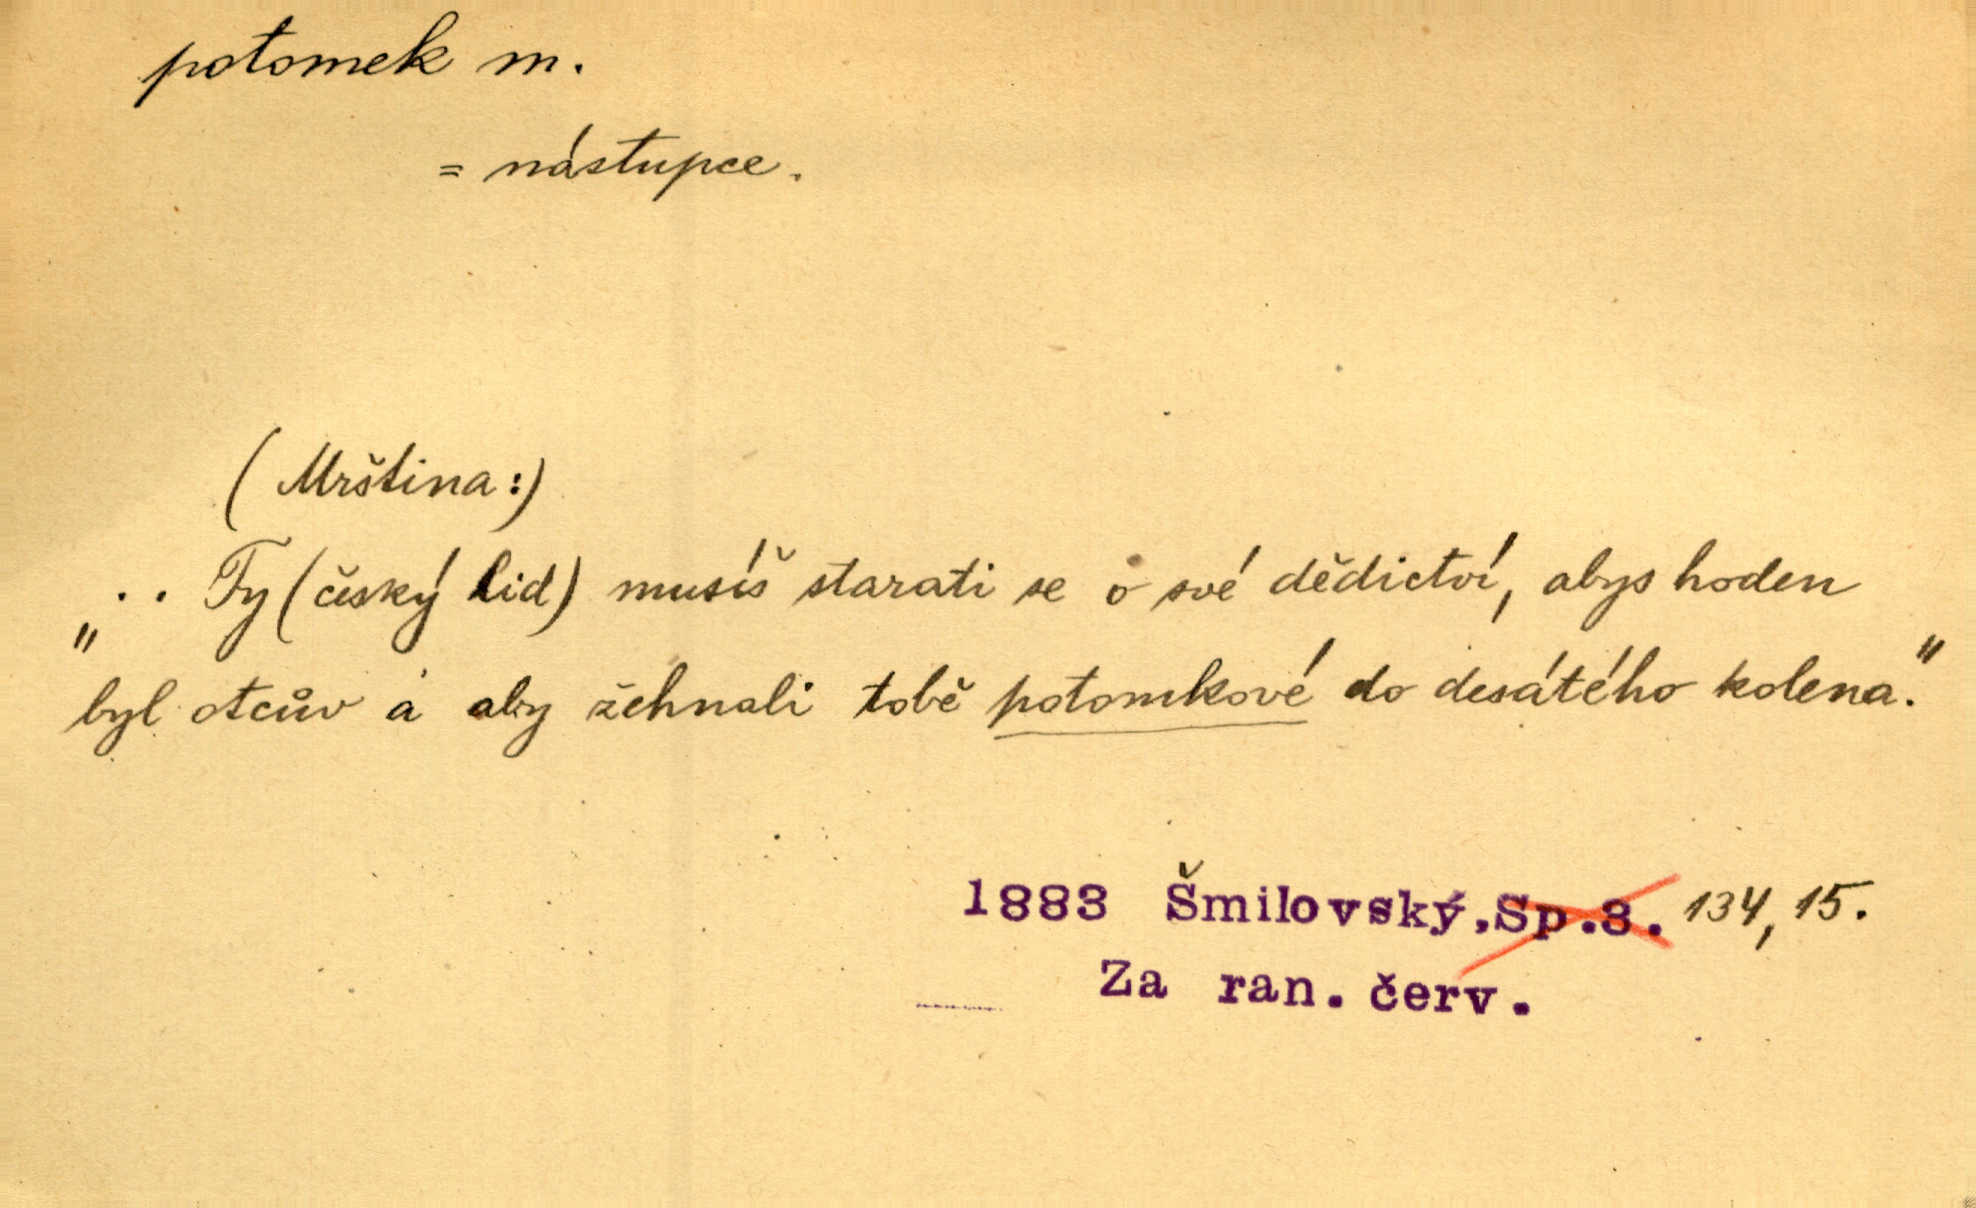 potomek m.
= nástupce.
(Mrština:)
„ . . Ty (český lid) musíš starati se o své dědictví, abys hoden
byl otcův a aby žehnali tobě potomkové do desátého kolena."
1883 Šmilovský, Sp.3. 134, 15.
Za ran. červ.